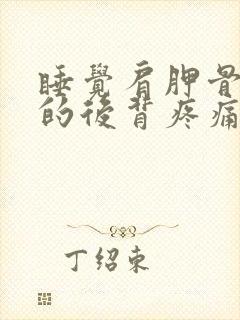 睡覺肩胛骨
的後背疼痛
丁绍東